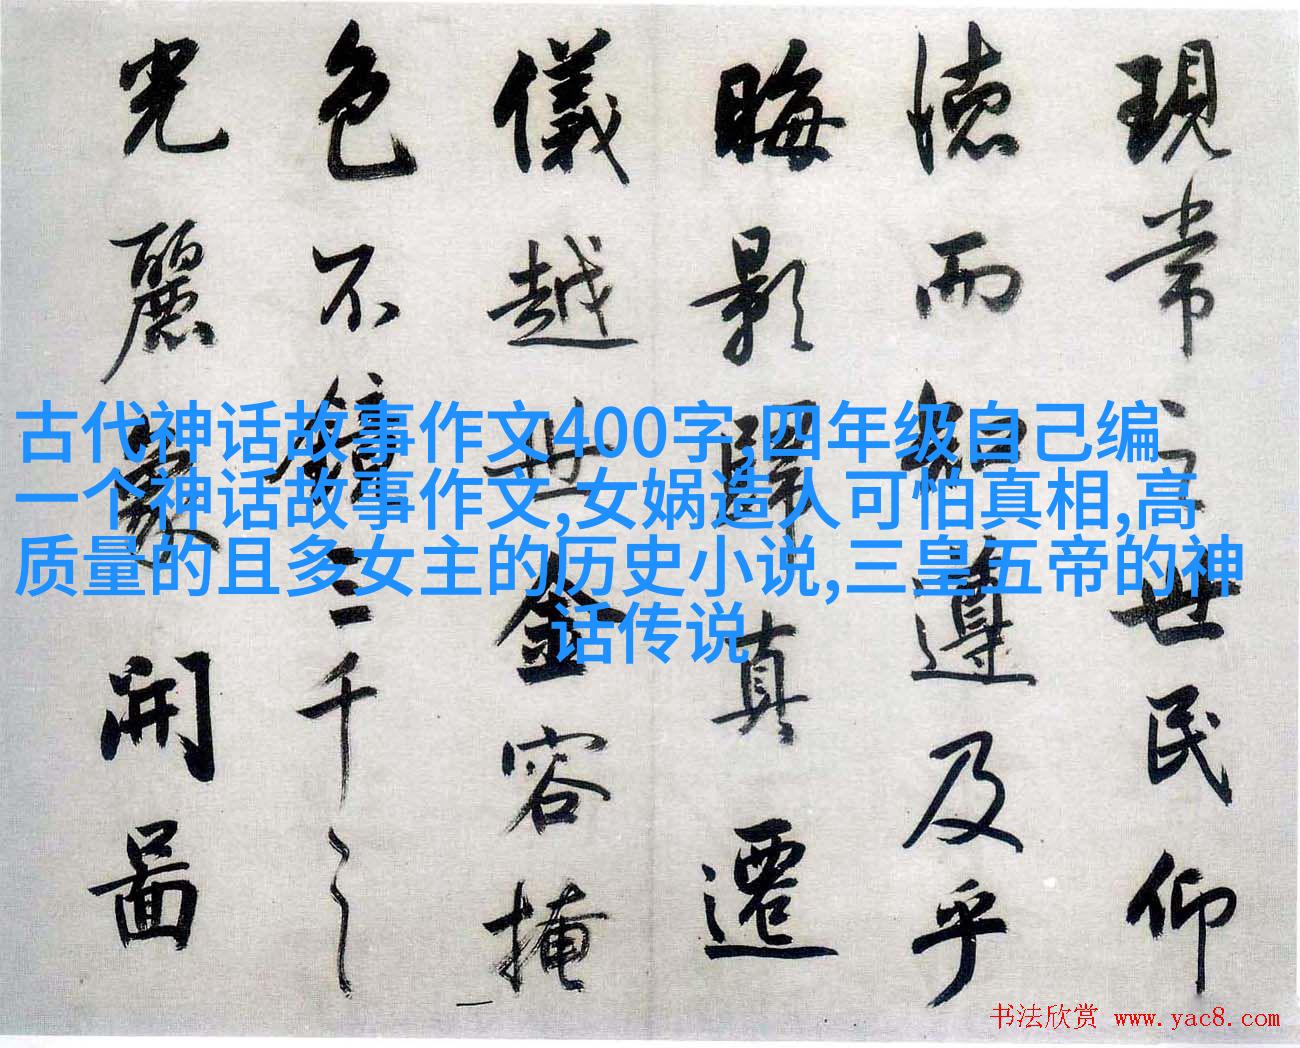 現常之世民仰
德而知遵及乎
晦影歸真遷
儀越世金容掩
色不鏡三千之
光麗象開圖
古代神话故事作文400字,四年级自己编
一个神话故事作文,女娲造人可怕真相,高
质量的且多女主的历史小说,三皇五帝的神
话传说
书法欣赏 www.yac8.com